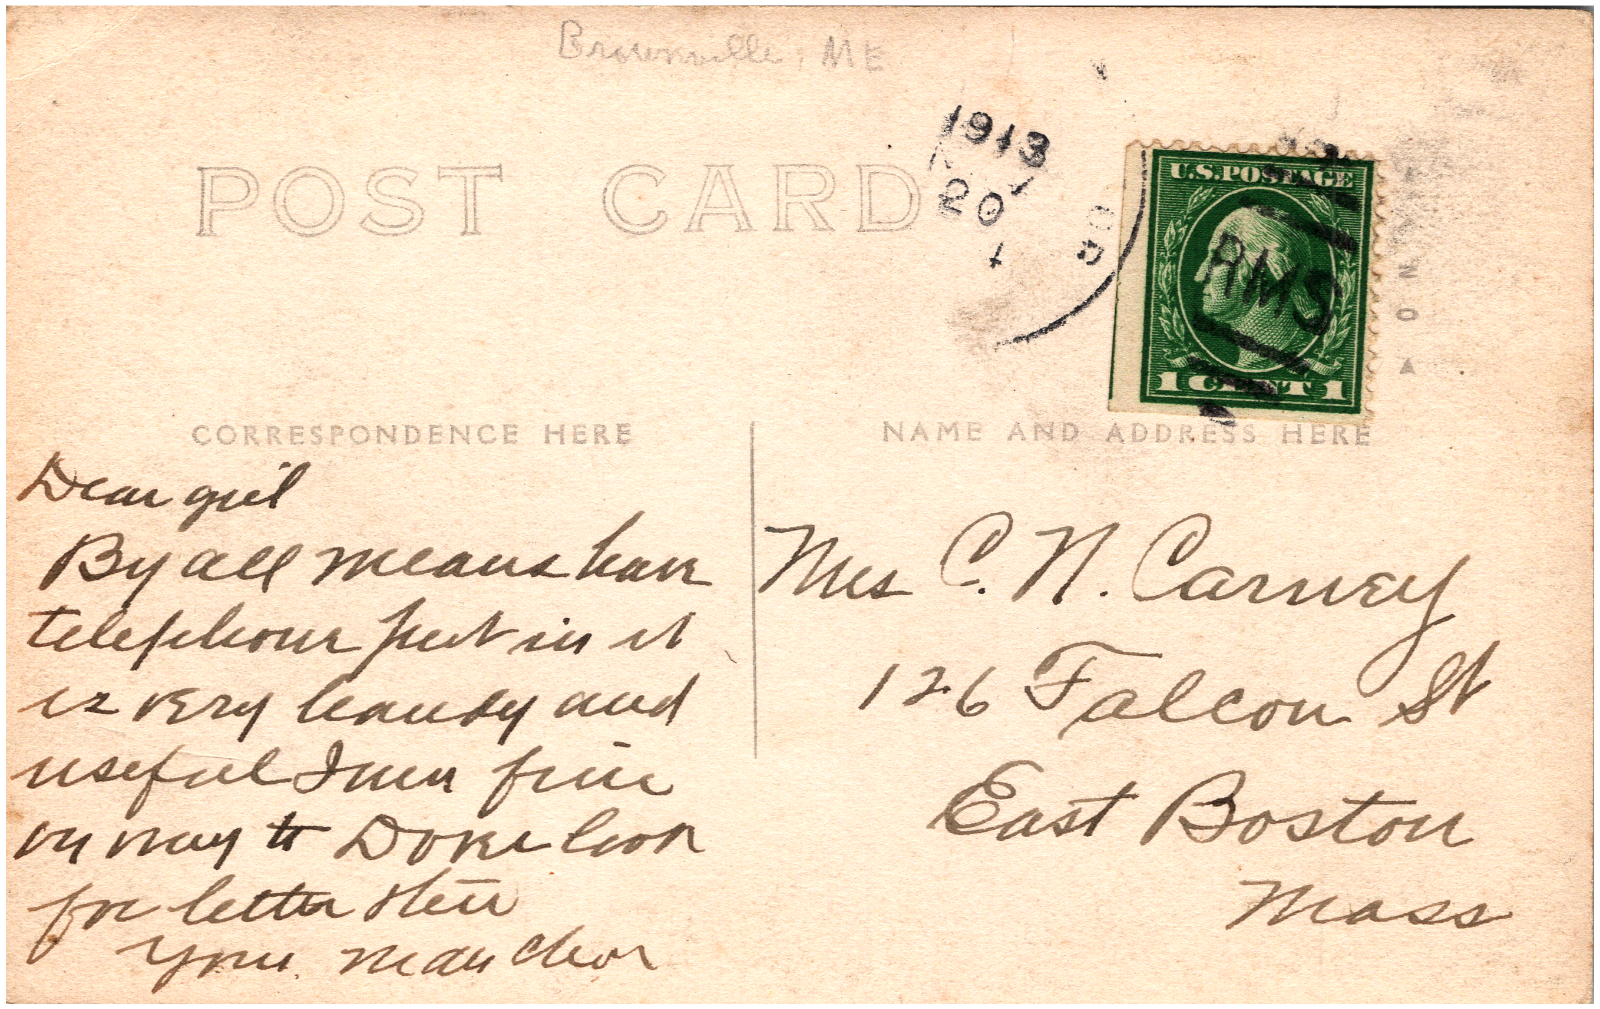 Brownville, ME
POST CARD
1913
20
1
U.S. POSTAGE
RMS
1 CENT 1
CORRESPONDENCE HERE
NAME AND ADDRESS HERE
Dear girl
By all means have
telephone put in it
is very handy and
useful I am fine
on way to Dover look
for letter there
Your man
Mrs C. N. Carney
126 Falcon St
East Boston
Mass